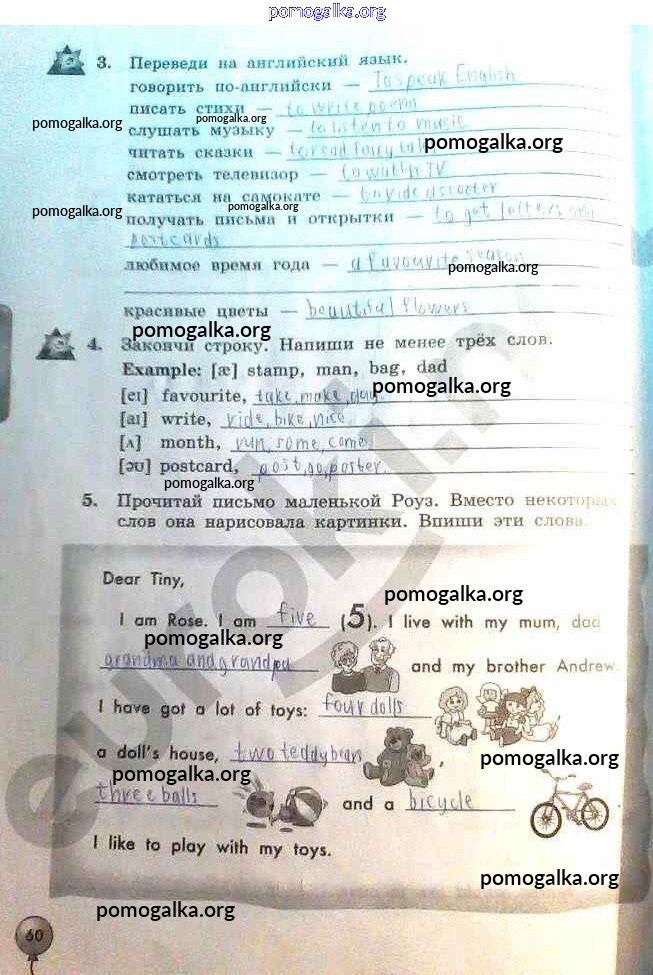 pomogalka.org
3. Переведи на английский язык.
говорить по-английски — To speak English
писать стихи — to write poems
pomogalka.org pomogalka.org
слушать музыку — to listen to music
pomogalka.org
читать сказки — to read fairy tal
смотреть телевизор — to watch TV
кататься на самокате — to ride a scooter
pomogalka.org pomogalka.org
получать письма и открытки — to get letters and
postcards
любимое время года — a favourite season
pomogalka.org
красивые цветы — beautiful flowers
pomogalka.org
4. Закончи строку. Напиши не менее трёх слов.
Example: [æ] stamp, man, bag, dad
pomogalka.org
[eɪ] favourite, take, make, day.
[aɪ] write, ride, bike, nice
[ʌ] month, run, some, come
[əʊ] postcard, post, go, poster.
pomogalka.org
5. Прочитай письмо маленькой Роуз. Вместо некоторых
слов она нарисовала картинки. Впиши эти слова.
Dear Tiny,
pomogalka.org
I am Rose. I am five (5). I live with my mum, dad
pomogalka.org
grandma and grandpa and my brother Andrew.
I have got a lot of toys: four dolls
a doll's house, two teddy bears,
pomogalka.org
pomogalka.org
three balls and a bicycle
I like to play with my toys.
pomogalka.org
pomogalka.org
60
euroki.n